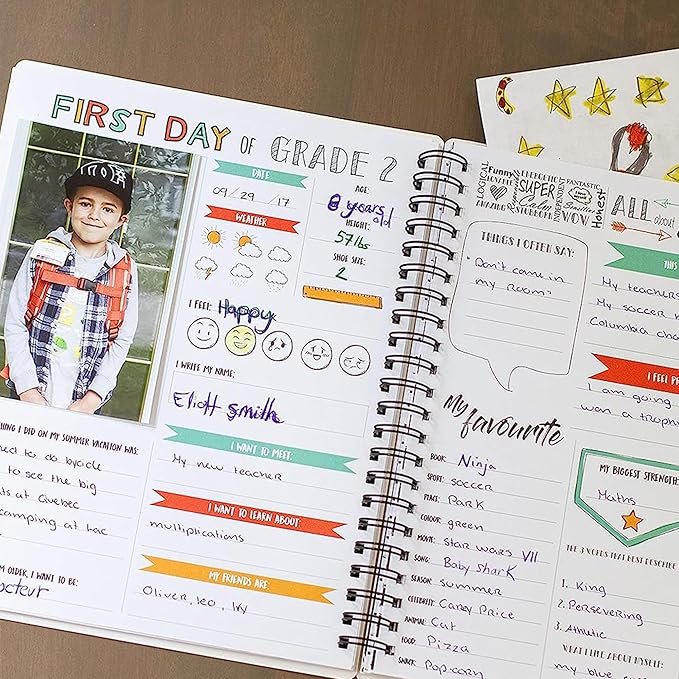 FIRST DAY OF GRADE 2
DATE
09/29/17
WEATHER
AGE:
8 years old
HEIGHT:
57 lbs
SHOE SIZE:
2
I FEEL: Happy
I WRITE MY NAME:
Eliott smith
I WANT TO MEET:
My new teacher
I WANT TO LEARN ABOUT:
multiplications
MY FRIENDS ARE:
Oliver, leo, Ivy
THING I DID ON MY SUMMER VACATION WAS:
to do bycicle
to see the big
at Quebec
camping at Lac
OLDER, I WANT TO BE:
octeur
LOGICAL
Funny
LOVING
AMAZING
ENERGETIC
SUPER
Calm
STUBBORN
INDEPENDENT
FANTASTIC
Sensitive
WOW
Honest
ALL about
THINGS I OFTEN SAY:
"Don't come in
my room"
THIS
My teachers
My soccer
Columbia
I FEEL
I am going
won a trophy
My favourite
BOOK: Ninja
SPORT: soccer
PLACE: Park
COLOUR: green
MOVIE: star wars VII
SONG: Baby shark
SEASON: summer
CELEBRITY: Carey Price
ANIMAL: Cat
FOOD: Pizza
SNACK: Pop-corn
MY BIGGEST STRENGTH:
Maths
THE 3 WORDS THAT BEST DESCRIBE
1. King
2. Persevering
3. Athletic
WHAT I LIKE ABOUT MYSELF:
my blue